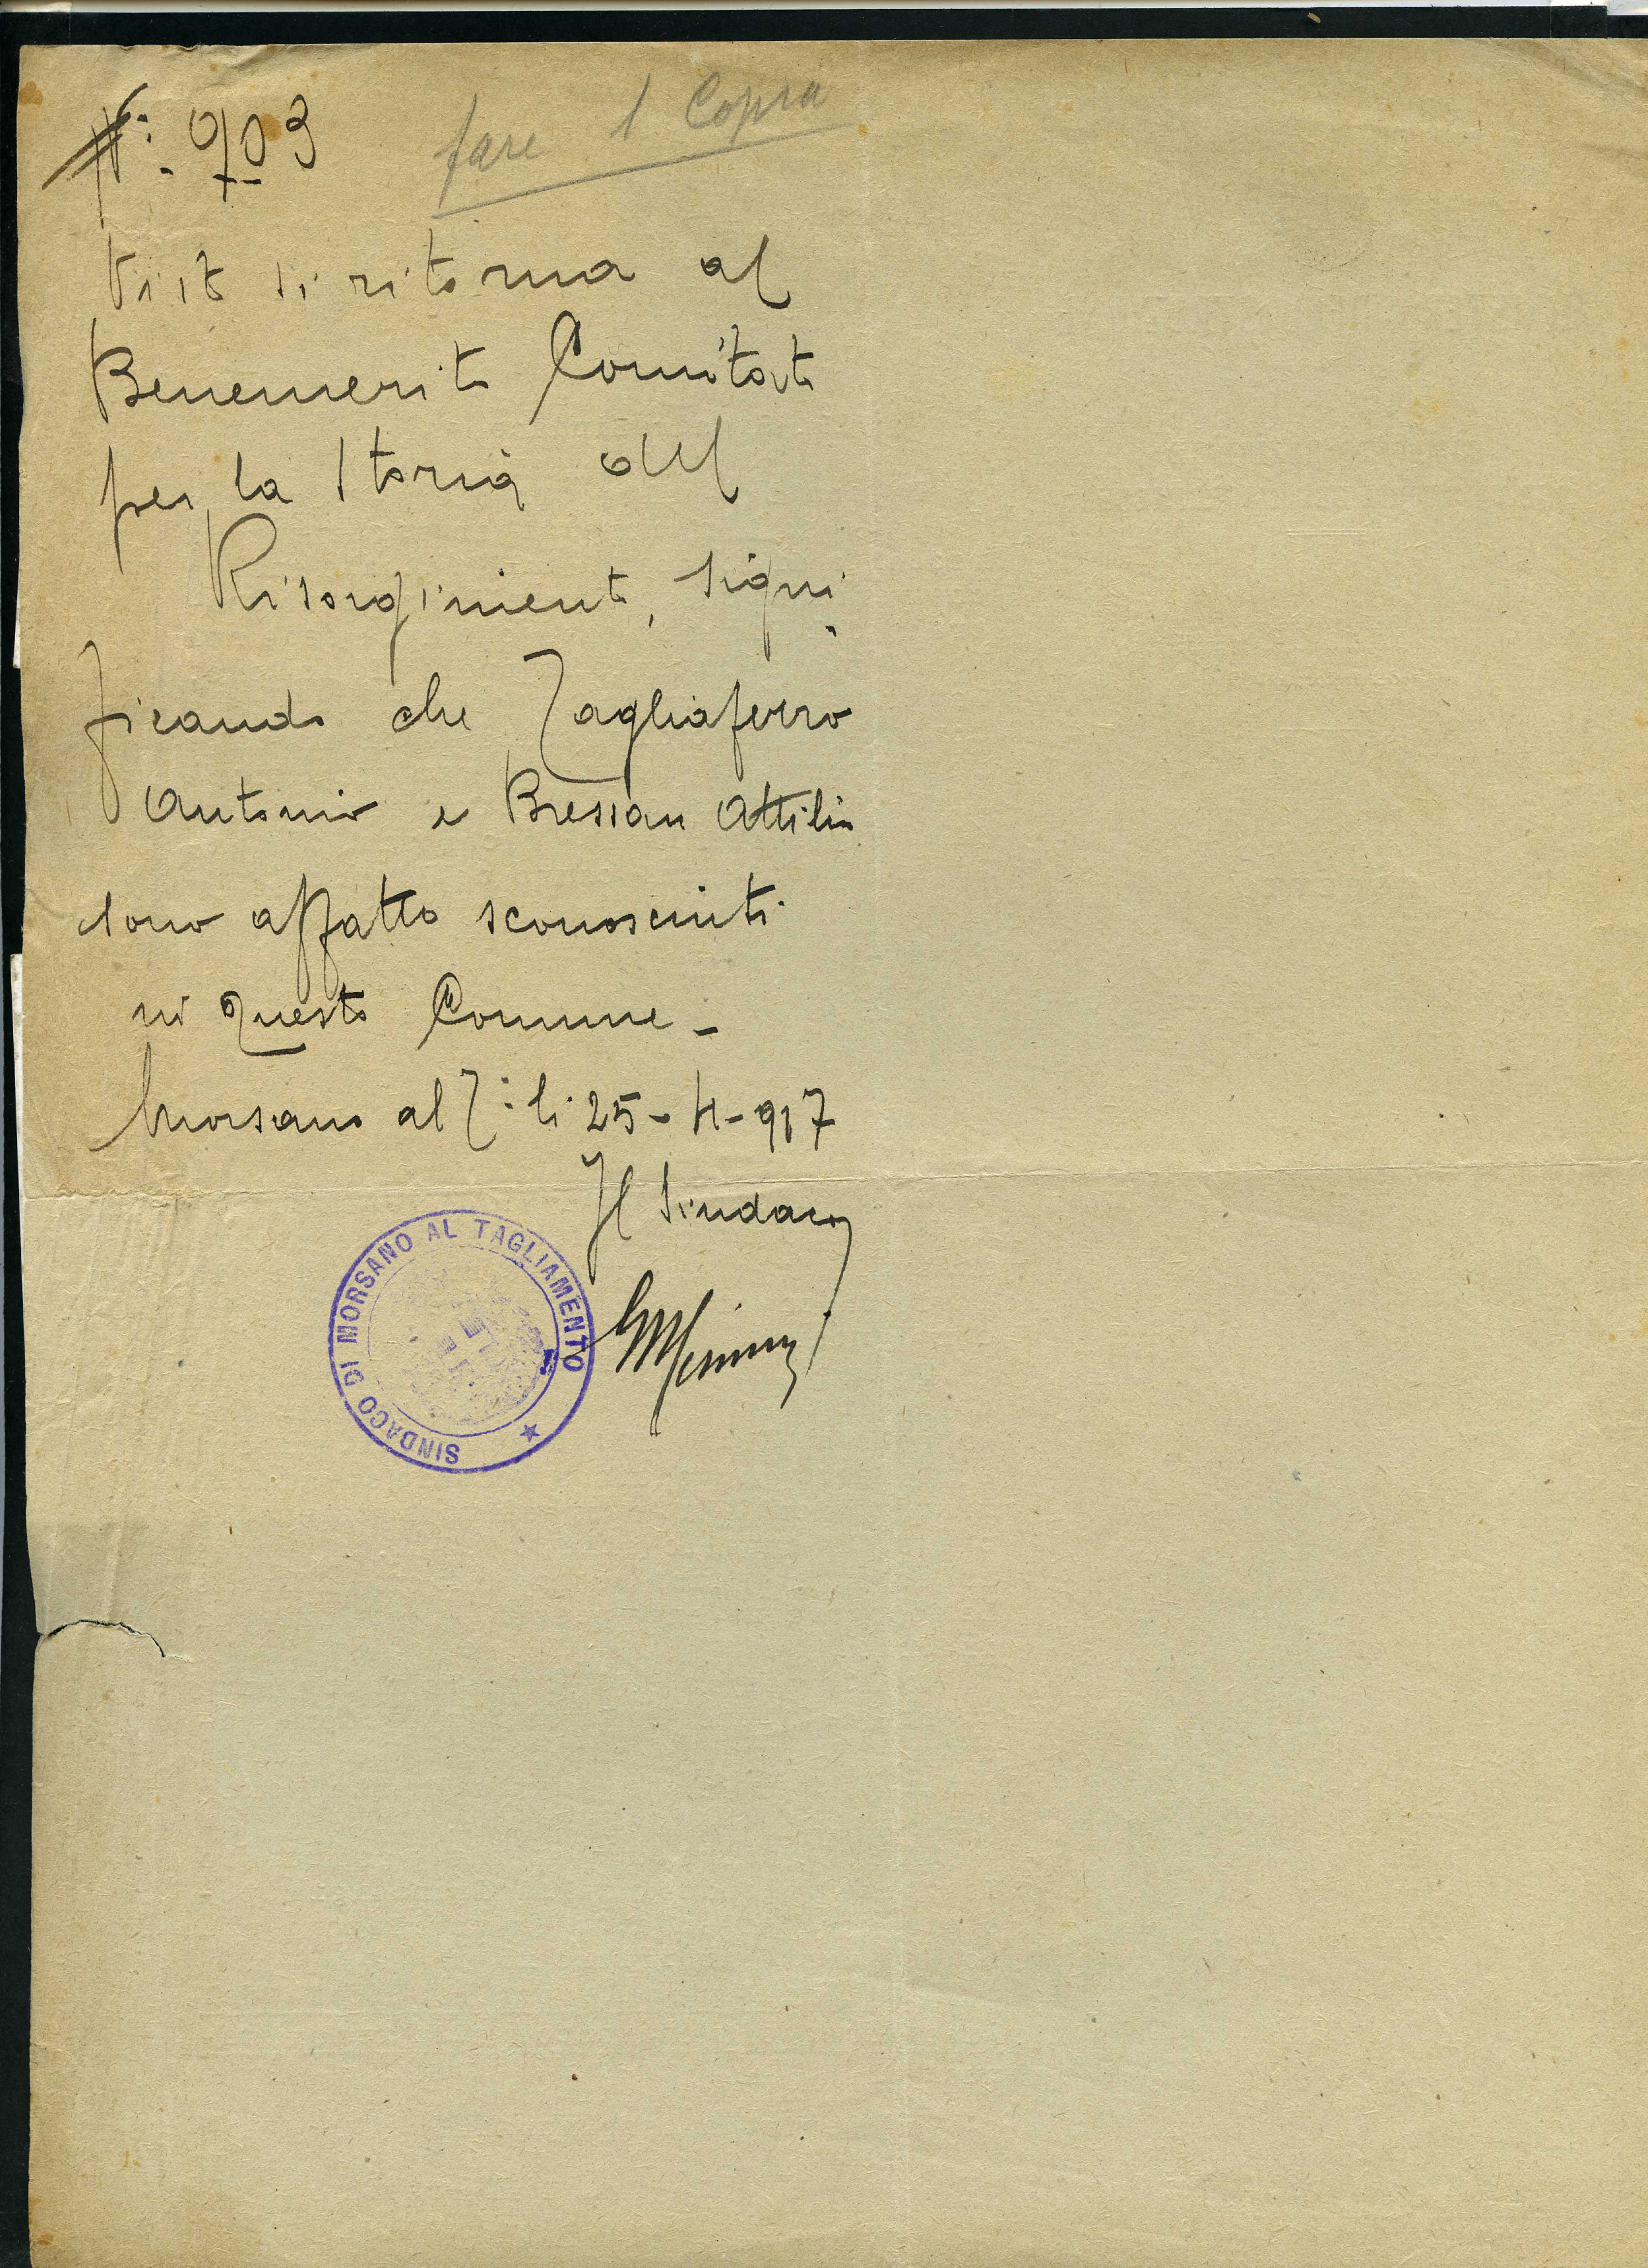 N: 903
fare 1 Copia
Visto si ritorna al
Benemerito Comitato
per la Storia del
Risorgimento, signi
ficando che Tagliaferro
Antonio e Bressan Attilio
sono affatto sconosciuti
in questo Comune -
Morsano al T: li 25-4-917
Il Sindaco
SINDACO DI MORSANO AL TAGLIAMENTO